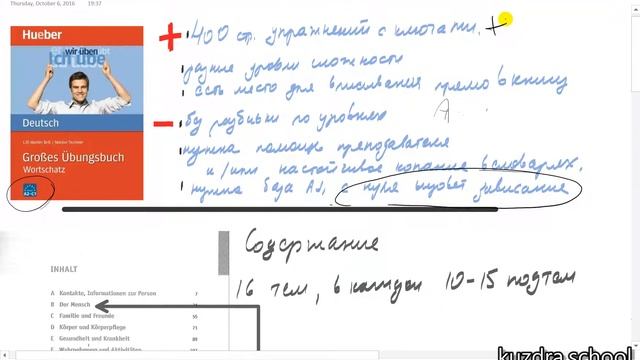 Thursday, October 6, 2016 19:37
Hueber
wir üben
Deutsch
Großes Übungsbuch
Wortschatz
A2-C1
+ 400 ст. упражнений с ключами. +
разные уровни сложности
есть место для вписывания прямо в книгу
А
- без разбивки по уровням
нужна помощь преподавателя
и/или настойчивое копание в словарях.
нужна база А1, с нуля будет зависание
Содержание
16 тем, в каждой 10-15 подтем
INHALT
A Kontakte, Informationen zur Person 7
B Der Mensch
C Familie und Freunde 55
D Körper und Körperpflege 71
E Gesundheit und Krankheit 89
kuzdra school